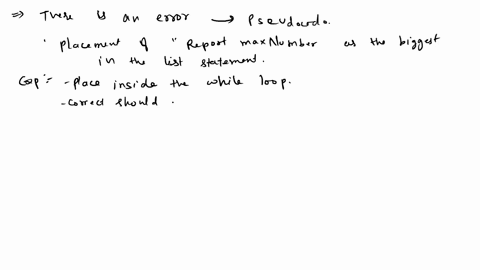 ⇒ There is an error → Pseudocode.
· placement of " Report maxNumber as the biggest
in the list statement.
Gap:- - place inside the while loop.
- correct should .